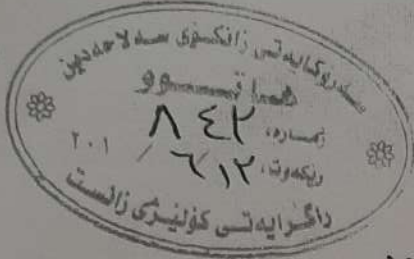 سەرۆکایەتی زانکۆی سەلاحەدین
هــاتــوو
ژمارە، ٨٤٢
ڕێکەوت، ٦/١٢ / ٢٠١
ڕاگرایەتی کۆلیژی زانست